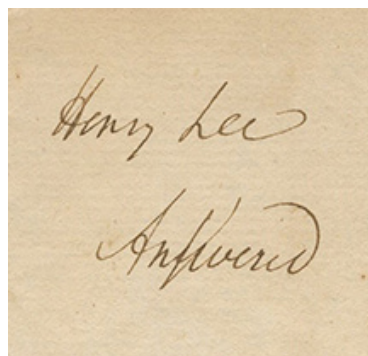 Henry Lee
Anſwered